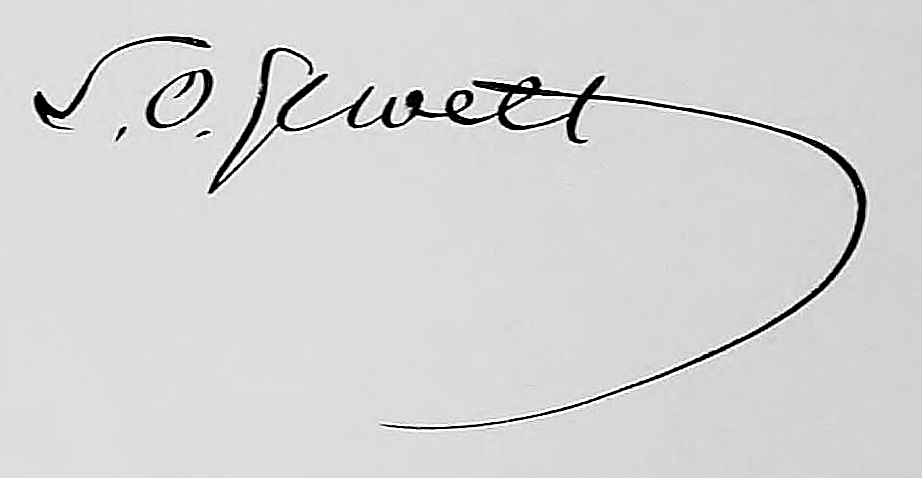 S. O. Jewett